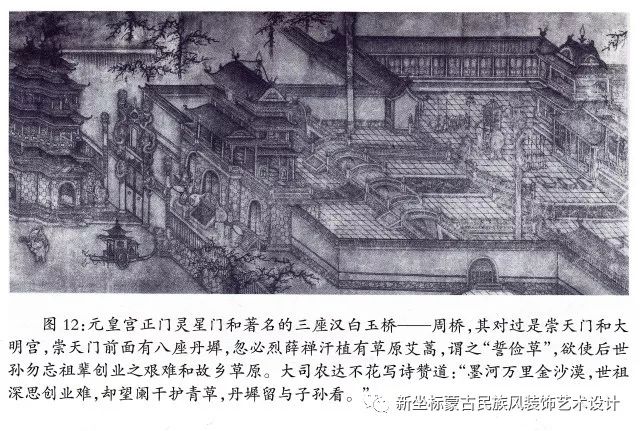 图 12:元皇宫正门灵星门和著名的三座汉白玉桥——周桥,其对过是崇天门和大
明宫,崇天门前面有八座丹墀,忽必烈薛禅汗植有草原艾蒿,谓之“誓俭草”,欲使后世
孙勿忘祖辈创业之艰难和故乡草原。大司农达不花写诗赞道:“墨河万里金沙漠,世祖
深思创业难,却望阑干护青草,丹墀留与子孙看。”
新坐标蒙古民族风装饰艺术设计